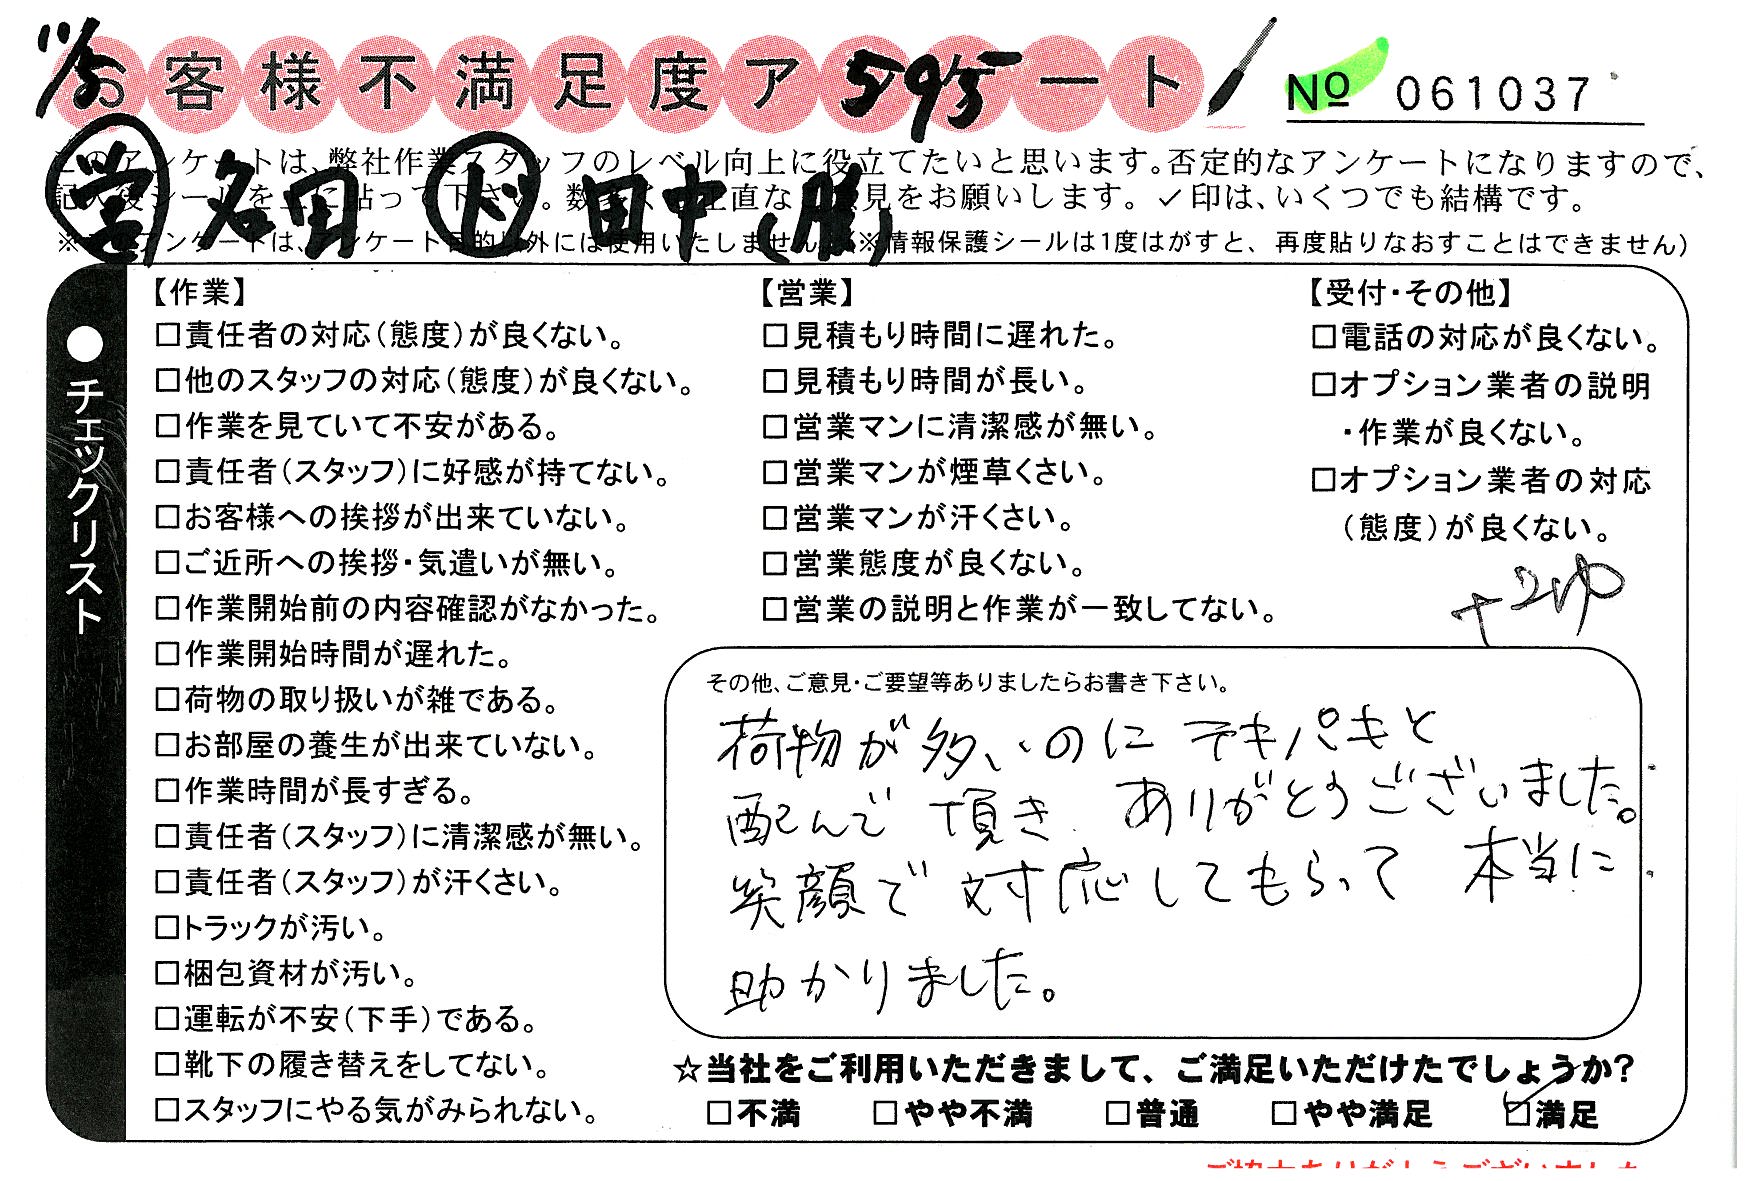 お客様不満足度アンケート
№ 061037
このアンケートは、弊社作業スタッフのレベル向上に役立てたいと思います。否定的なアンケートになりますので、
記入後シールを上に貼って下さい。数多く 正直な 見をお願いします。✓印は、いくつでも結構です。
営 名田 ド 田中
※ アンケートは、アンケート目的以外には使用いたしません (※情報保護シールは1度はがすと、再度貼りなおすことはできません)
●チェックリスト
【作業】
□責任者の対応(態度)が良くない。
□他のスタッフの対応(態度)が良くない。
□作業を見ていて不安がある。
□責任者(スタッフ)に好感が持てない。
□お客様への挨拶が出来ていない。
□ご近所への挨拶・気遣いが無い。
□作業開始前の内容確認がなかった。
□作業開始時間が遅れた。
□荷物の取り扱いが雑である。
□お部屋の養生が出来ていない。
□作業時間が長すぎる。
□責任者(スタッフ)に清潔感が無い。
□責任者(スタッフ)が汗くさい。
□トラックが汚い。
□梱包資材が汚い。
□運転が不安(下手)である。
□靴下の履き替えをしてない。
□スタッフにやる気がみられない。
【営業】
□見積もり時間に遅れた。
□見積もり時間が長い。
□営業マンに清潔感が無い。
□営業マンが煙草くさい。
□営業マンが汗くさい。
□営業態度が良くない。
□営業の説明と作業が一致してない。
【受付・その他】
□電話の対応が良くない。
□オプション業者の説明
・作業が良くない。
□オプション業者の対応
(態度)が良くない。
その他、ご意見・ご要望等ありましたらお書き下さい。
荷物が多いのに テキパキと
配んで 頂き ありがとうございました。
笑顔で 対応してもらって 本当に
助かりました。
☆当社をご利用いただきまして、ご満足いただけたでしょうか?
□不満 □やや不満 □普通 □やや満足 ☑満足
ご協力ありがとうございました